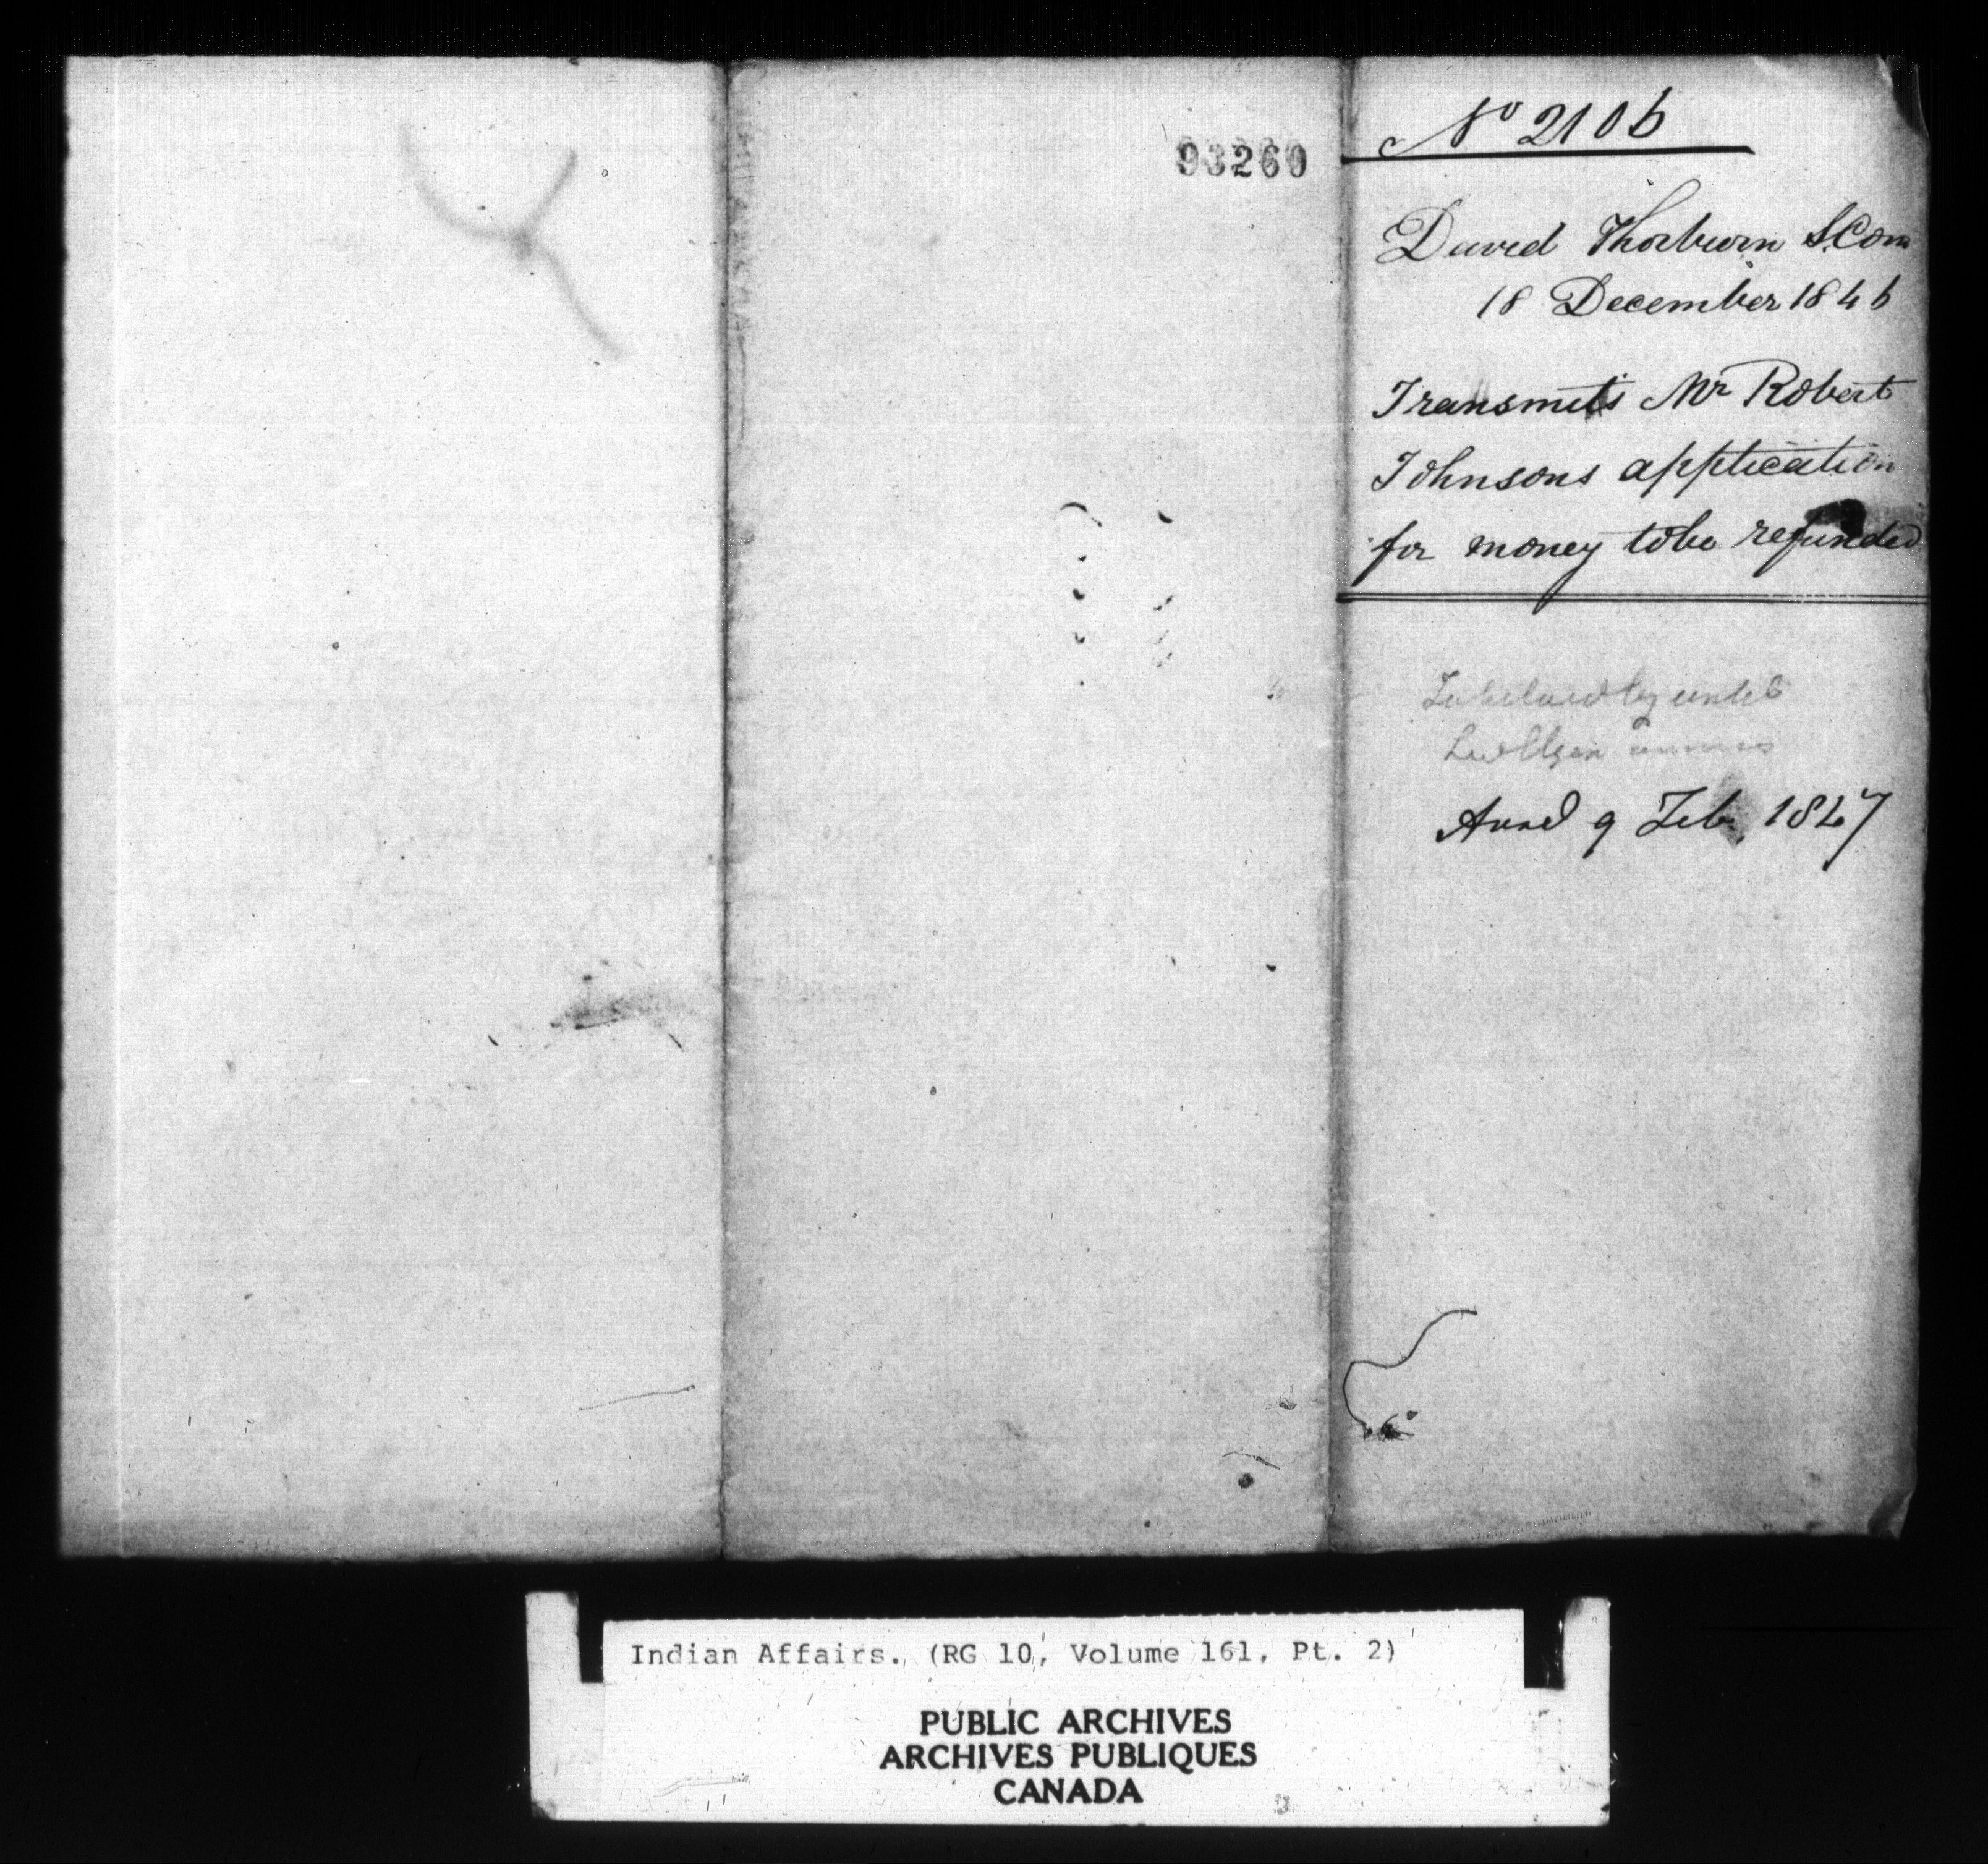 93260
No 2106
David Thorburn S.Com
18 December 1846
Transmits Mr Robert
Johnsons application
for money to be refunded
To be laid by until
Ansd 9 Feb. 1847
Indian Affairs. (RG 10, Volume 161, Pt. 2)
PUBLIC ARCHIVES
ARCHIVES PUBLIQUES
CANADA